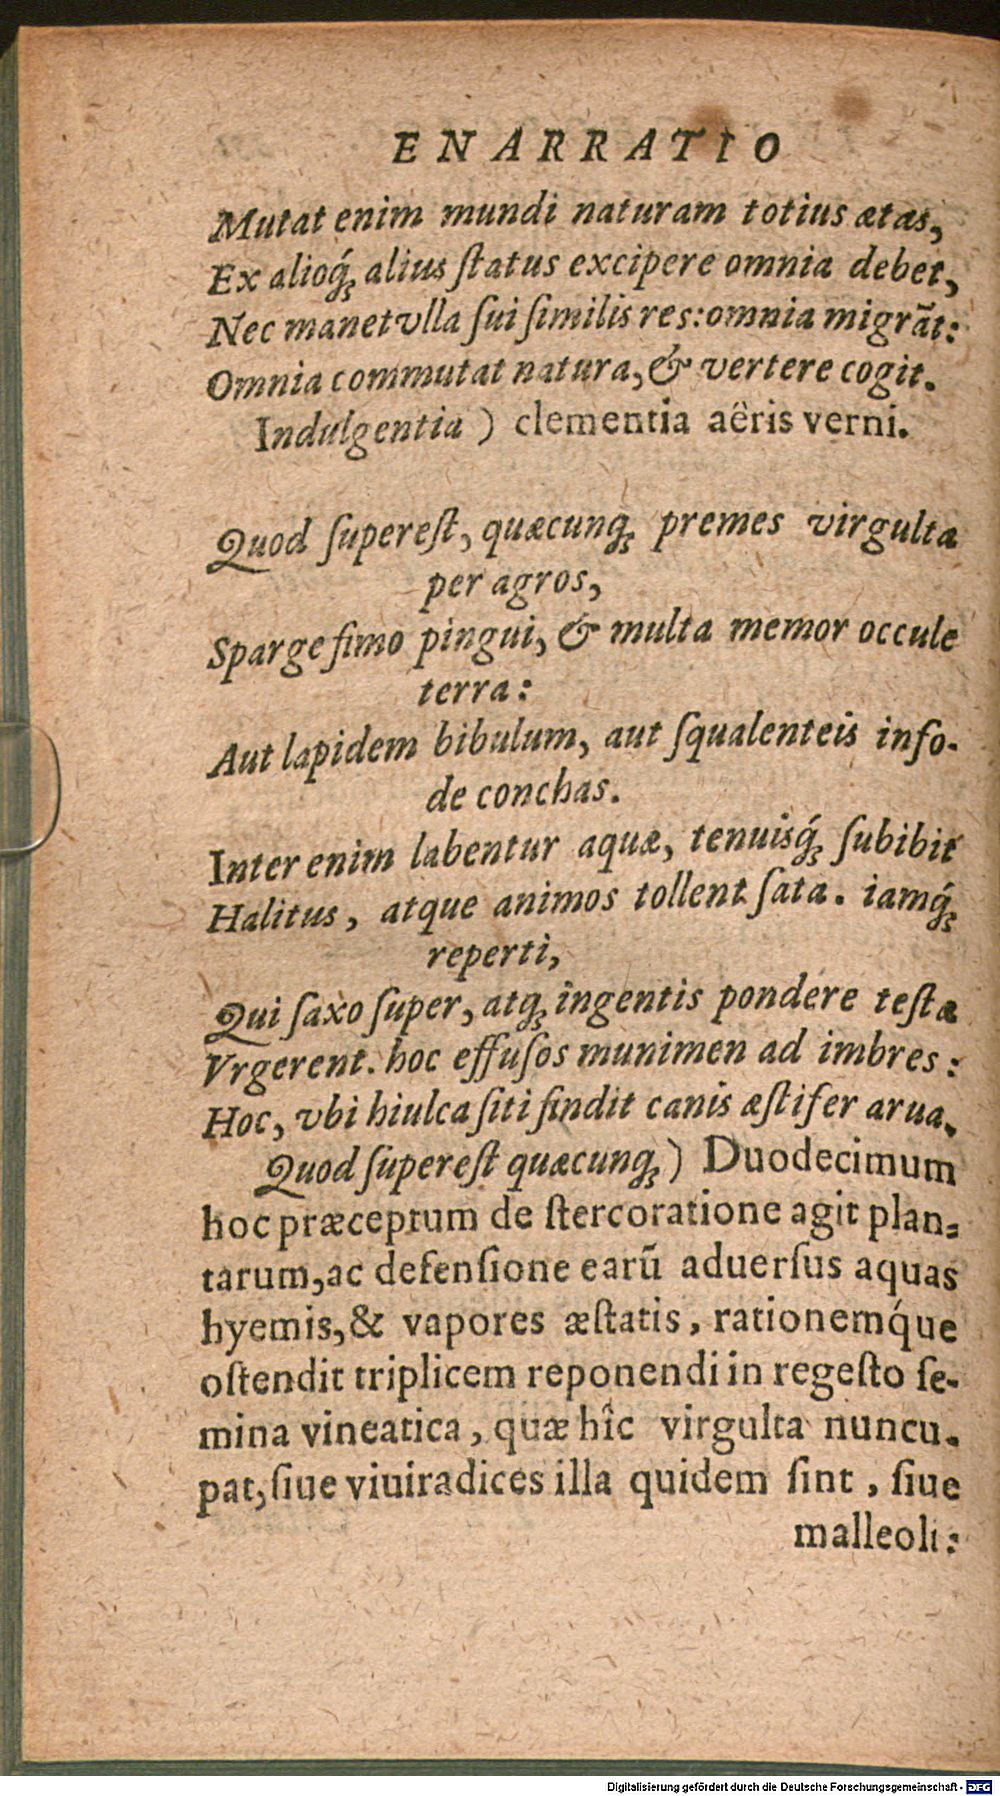 ENARRATIO
Mutat enim mundi naturam totius ætas,
Ex alioq́ꝫ alius ſtatus excipere omnia debet,
Nec manet vlla ſui ſimilis res: omnia migrãt:
Omnia commutat natura, & vertere cogit.
Indulgentia ) clementia aëris verni.
Quod ſupereſt, quæcunqꝫ premes virgulta
per agros,
Sparge fimo pingui, & multa memor occule
terra:
Aut lapidem bibulum, aut ſqualenteis info-
de conchas.
Inter enim labentur aquæ, tenuisq́ꝫ ſubibit
Halitus, atque animos tollent ſata. iamq́ꝫ
reperti,
Qui ſaxo ſuper, atqꝫ ingentis pondere teſtæ
Vrgerent. hoc effuſos munimen ad imbres:
Hoc, vbi hiulca ſiti findit canis æſtifer arua.
Quod ſupereſt quæcunqꝫ ) Duodecimum
hoc præceptum de ſtercoratione agit plan-
tarum, ac defenſione earũ aduerſus aquas
hyemis, & vapores æſtatis, rationemq́ue
oſtendit triplicem reponendi in regeſto ſe-
mina vineatica, quæ hîc virgulta nuncu-
pat, ſiue viuiradices illa quidem ſint, ſiue
malleoli:
Digitalisierung gefördert durch die Deutsche Forschungsgemeinschaft - DFG